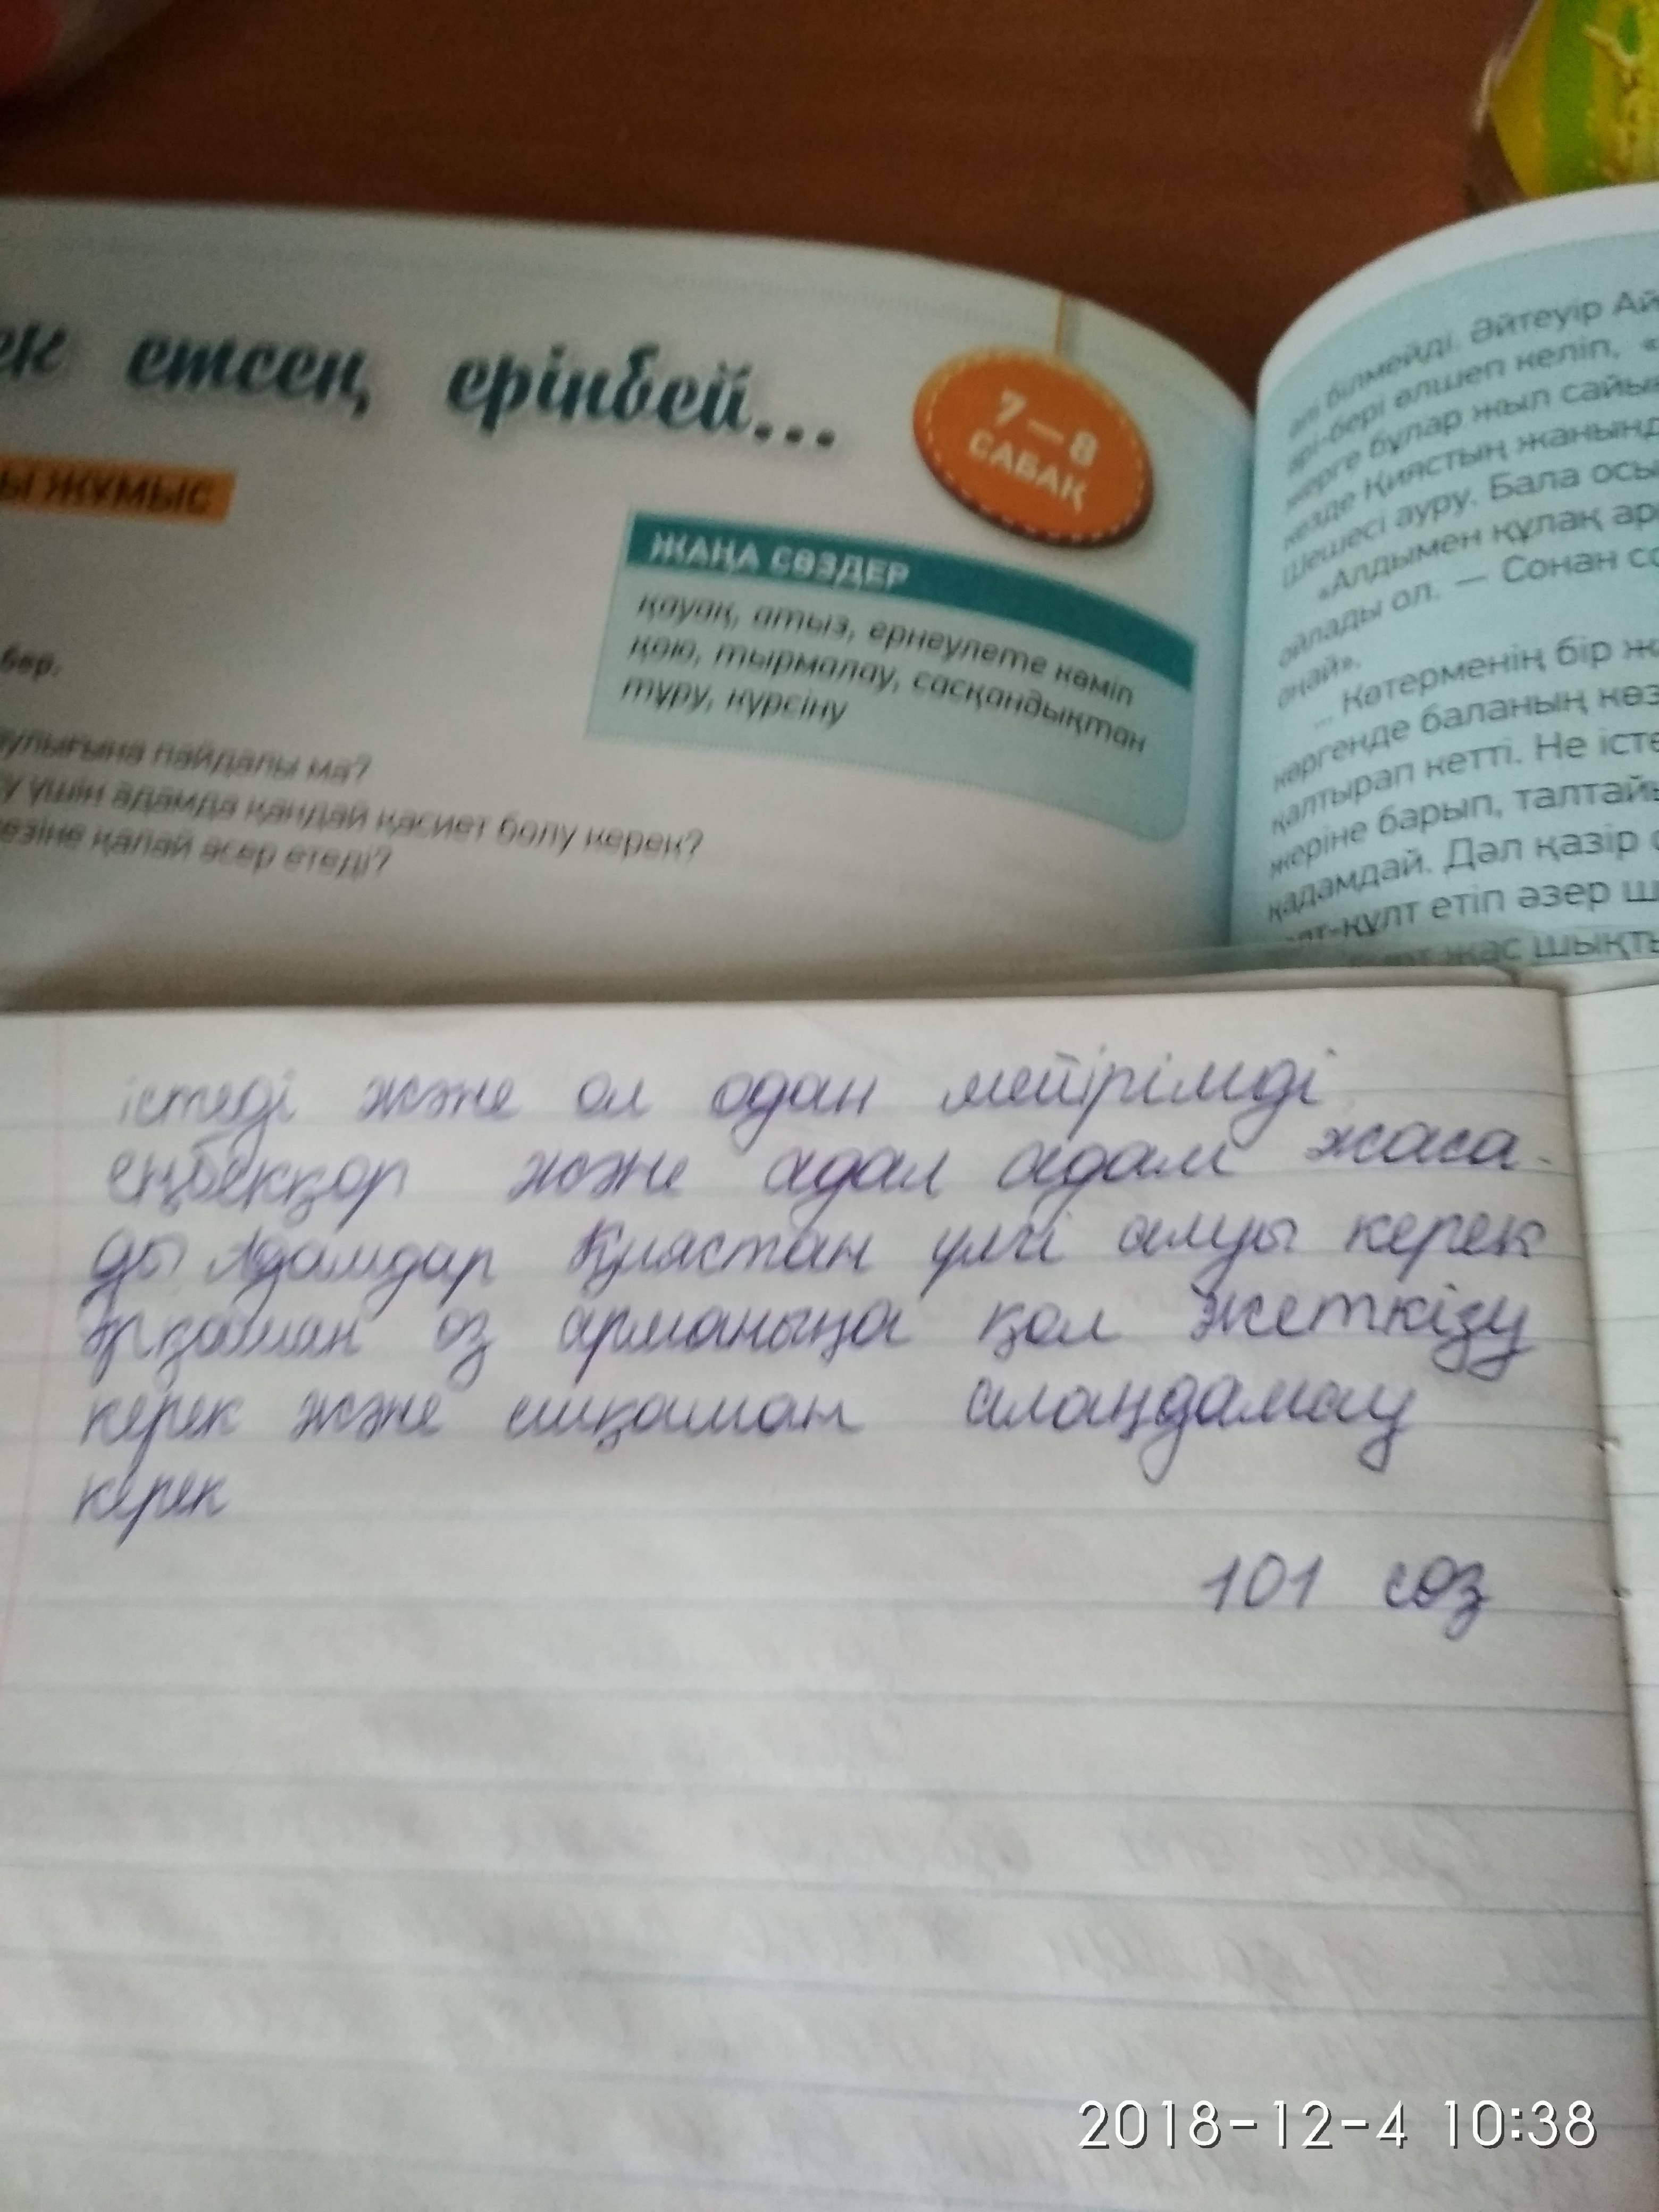 етсең, ерінбей...
7—8
САБАҚ
ЖҰМЫС
ЖАҢА СӨЗДЕР
қауақ, атыз, ернеулете көміп
қою, тырмалау, сасқандықтан
тұру, күрсіну
бер.
пайдалы ма?
үшін адамда қандай қасиет болу керек?
қалай әсер етеді?
білмейді. Әйтеуір
әрі-бері өлшеп келіп, «
жерге бұлар жыл сайын
кезде Қиястың жанында
Шешесі ауру. Бала осы
«Алдымен құлақ
ойлады ол. — Сонан
оңай».
... Көтерменің бір
көргенде баланың
қалтырап кетті. Не істе
жеріне барып,
қадамдай. Дәл қазір
етіп әзер
жас шықты
істеді және ол одан мейірімді
еңбекқор және адал адам жаса-
ды Адамдар Қиястан үлгі алуы керек
Әрқашан өз арманыңа қол жеткізу
керек және ешқашан алаңдамау
керек
101 сөз
2018-12-4 10:38